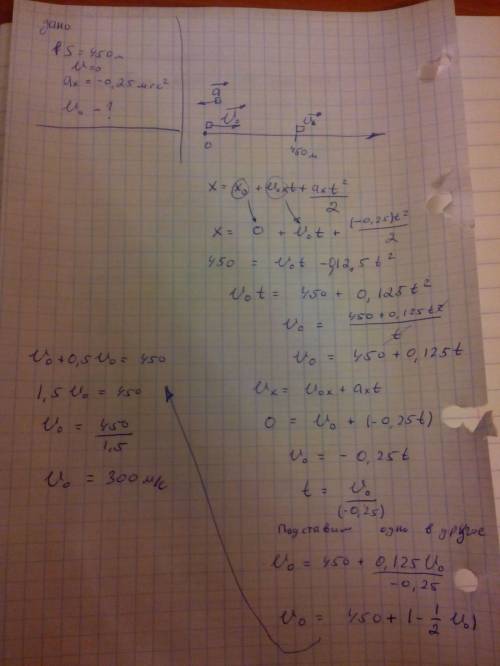 дано
S = 450 м
v = 0
aₓ = -0,25 м/с²
v₀ - ?
a
v₀
vₓ
0
450 м
x = x₀ + v₀xt + aₓt²/2
x = 0 + v₀t + (-0,25)t²/2
450 = v₀t - 0,12,5t²
v₀t = 450 + 0,125t²
v₀ = 450 + 0,125t²/t
v₀ = 450 + 0,125t
vₓ = v₀ₓ + aₓt
0 = v₀ + (-0,25t)
v₀ = - 0,25t
t = v₀/(-0,25)
Подставим одно в другое
v₀ = 450 + 0,125v₀/-0,25
v₀ = 450 + (-1/2 v₀)
v₀ + 0,5v₀ = 450
1,5v₀ = 450
v₀ = 450/1,5
v₀ = 300 м/с